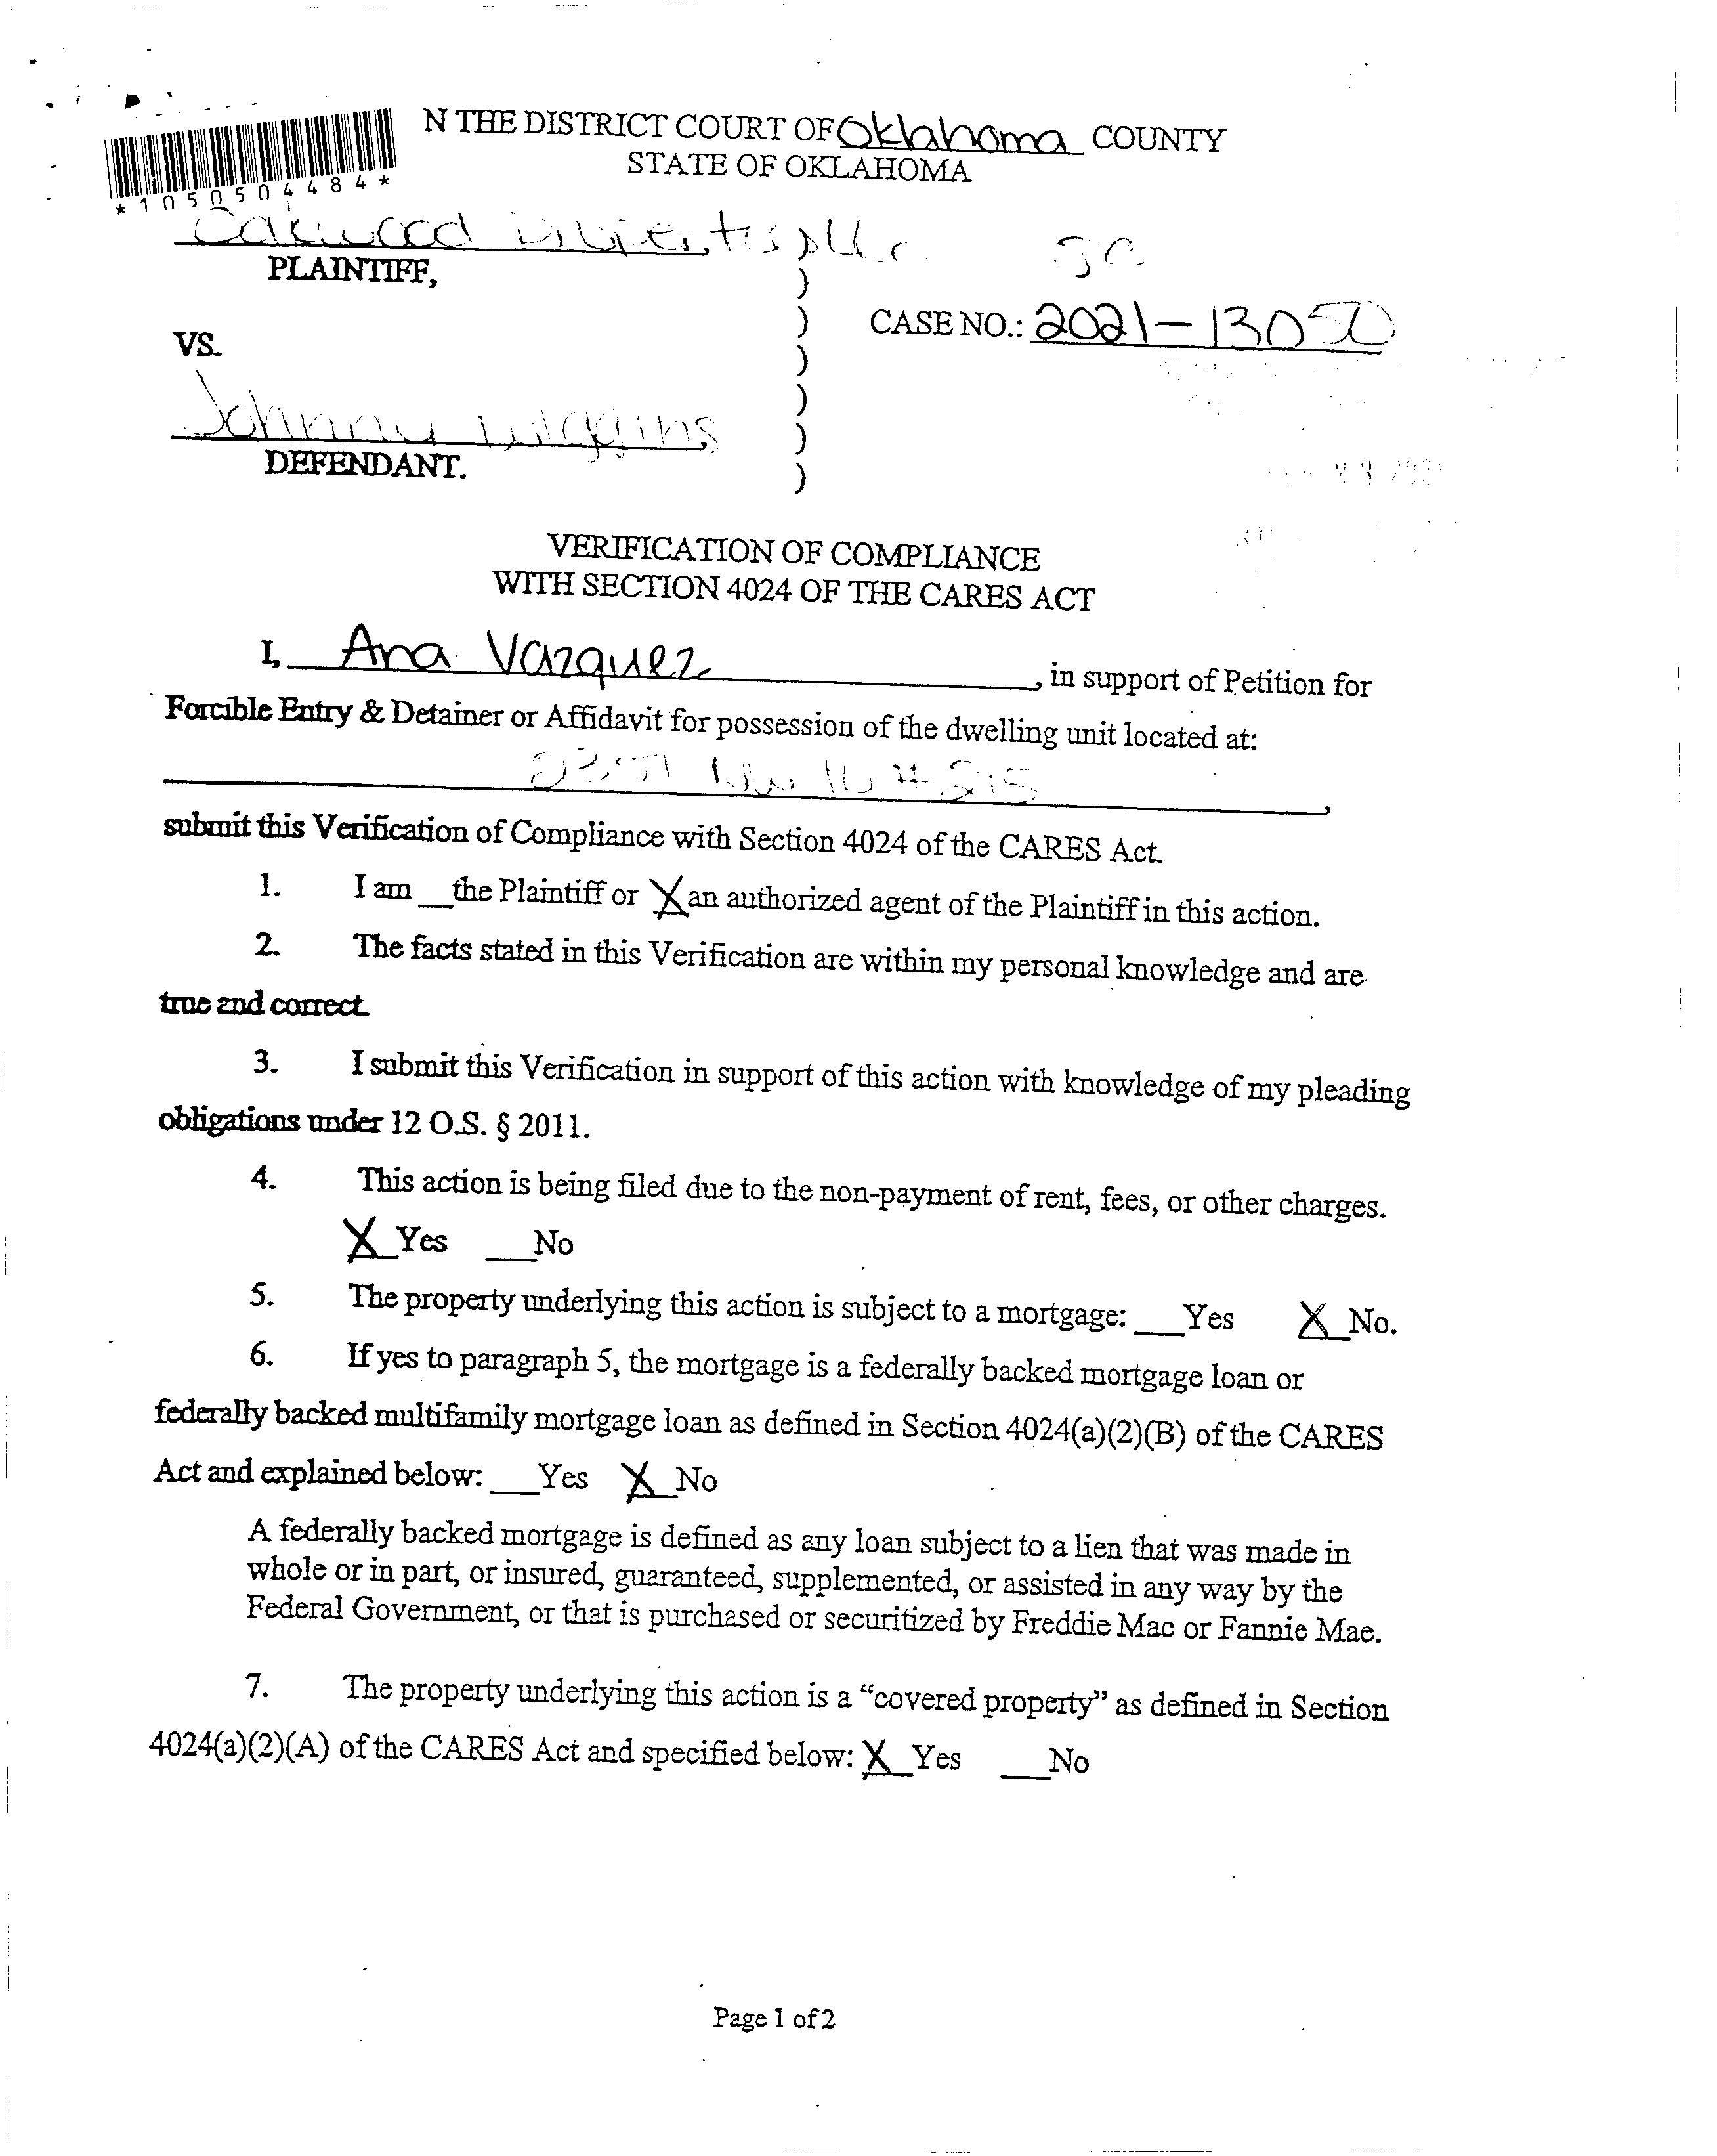 N THE DISTRICT COURT OF Oklahoma COUNTY
STATE OF OKLAHOMA
*1050504484*
Oakwood
PLAINTIFF,
)
)
CASE NO.: 2021-13050
VS.
)
)
Johnny Wiggins
)
DEFENDANT.
)
VERIFICATION OF COMPLIANCE
WITH SECTION 4024 OF THE CARES ACT
I, Ana Vazquez, in support of Petition for
Forcible Entry & Detainer or Affidavit for possession of the dwelling unit located at:
NW 16 #215,
submit this Verification of Compliance with Section 4024 of the CARES Act.
1. I am __the Plaintiff or X an authorized agent of the Plaintiff in this action.
2. The facts stated in this Verification are within my personal knowledge and are
true and correct.
3. I submit this Verification in support of this action with knowledge of my pleading
obligations under 12 O.S. § 2011.
4. This action is being filed due to the non-payment of rent, fees, or other charges.
X Yes ___No
5. The property underlying this action is subject to a mortgage: ___Yes X No.
6. If yes to paragraph 5, the mortgage is a federally backed mortgage loan or
federally backed multifamily mortgage loan as defined in Section 4024(a)(2)(B) of the CARES
Act and explained below: ___Yes X No
A federally backed mortgage is defined as any loan subject to a lien that was made in
whole or in part, or insured, guaranteed, supplemented, or assisted in any way by the
Federal Government, or that is purchased or securitized by Freddie Mac or Fannie Mae.
7. The property underlying this action is a “covered property” as defined in Section
4024(a)(2)(A) of the CARES Act and specified below: X Yes ___No
Page 1 of 2